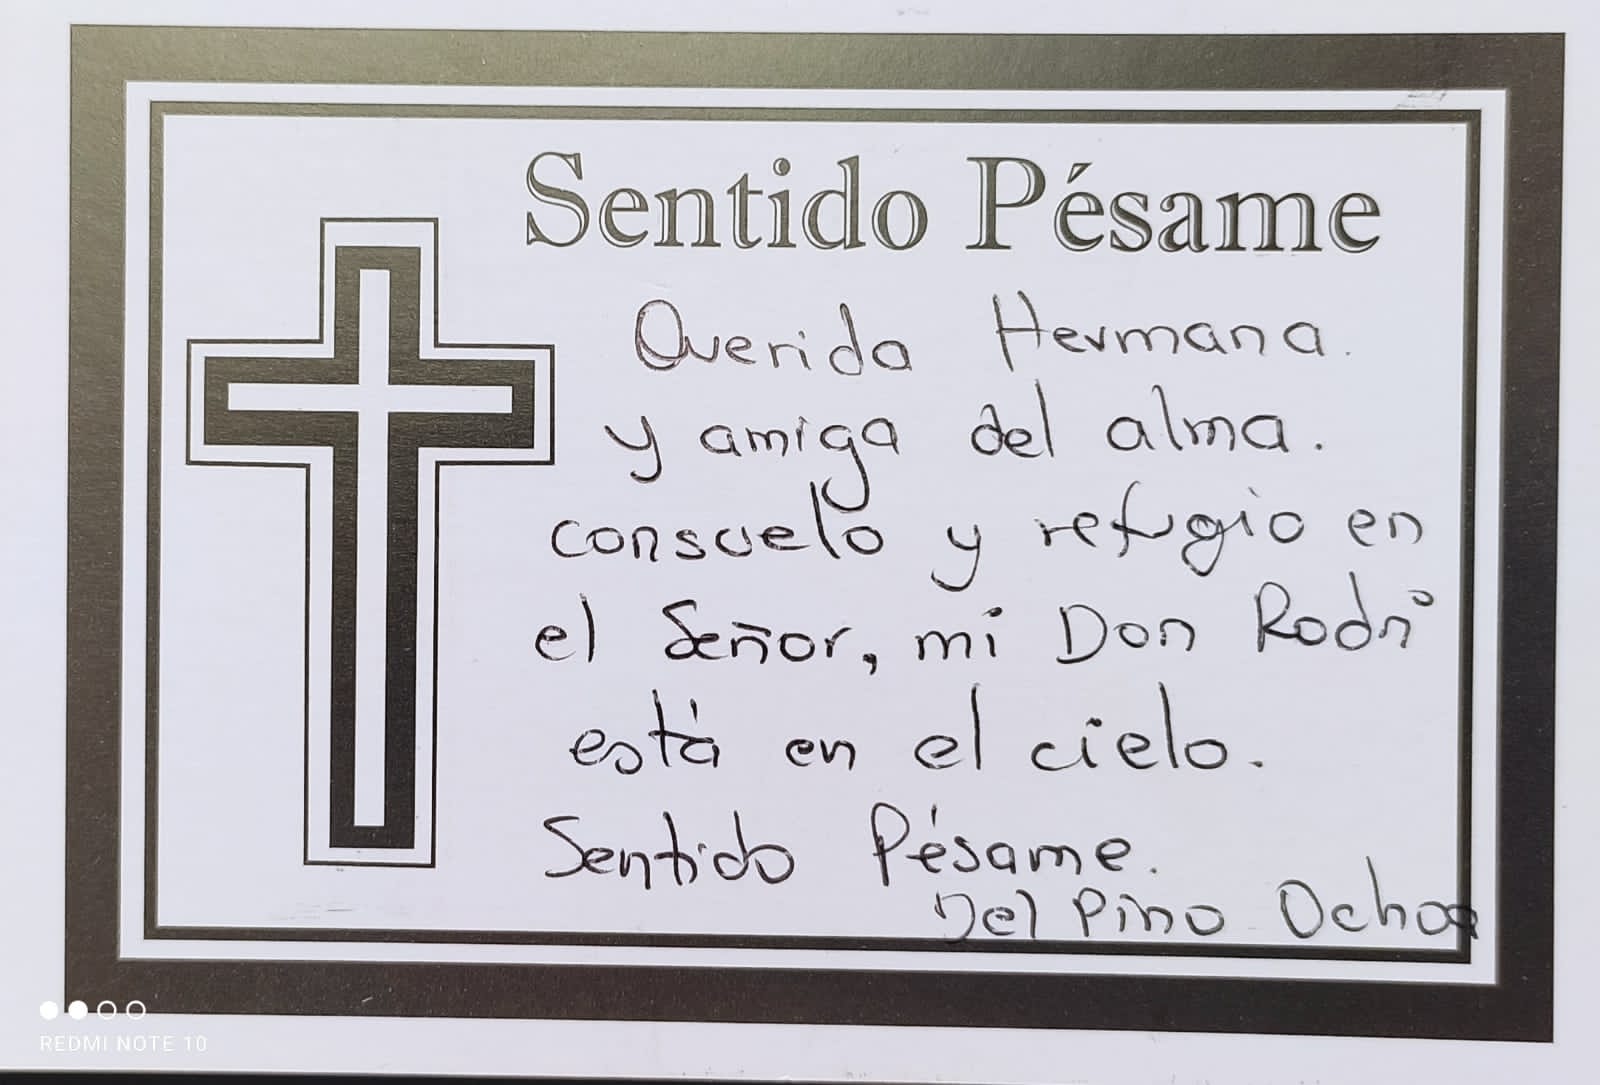 Sentido Pésame
Querida Hermana.
y amiga del alma.
consuelo y refugio en
el Señor, mi Don Rodri
está en el cielo.
Sentido Pésame.
Del Pino Ochoa
REDMI NOTE 10